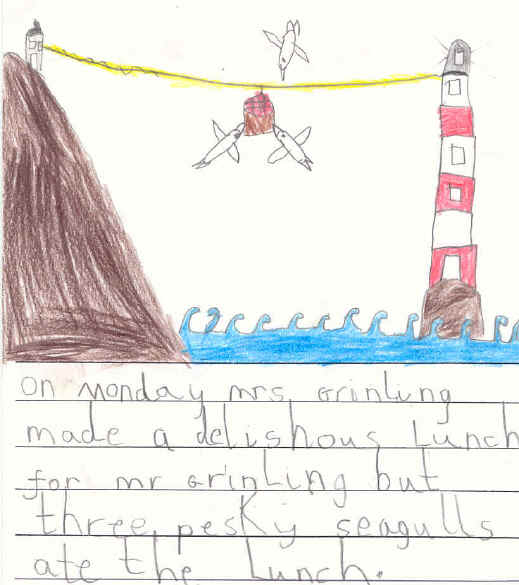 on Monday mrs Grinling
made a delishous Lunch
for mr Grinling but
three pesky seagulls
ate the Lunch.